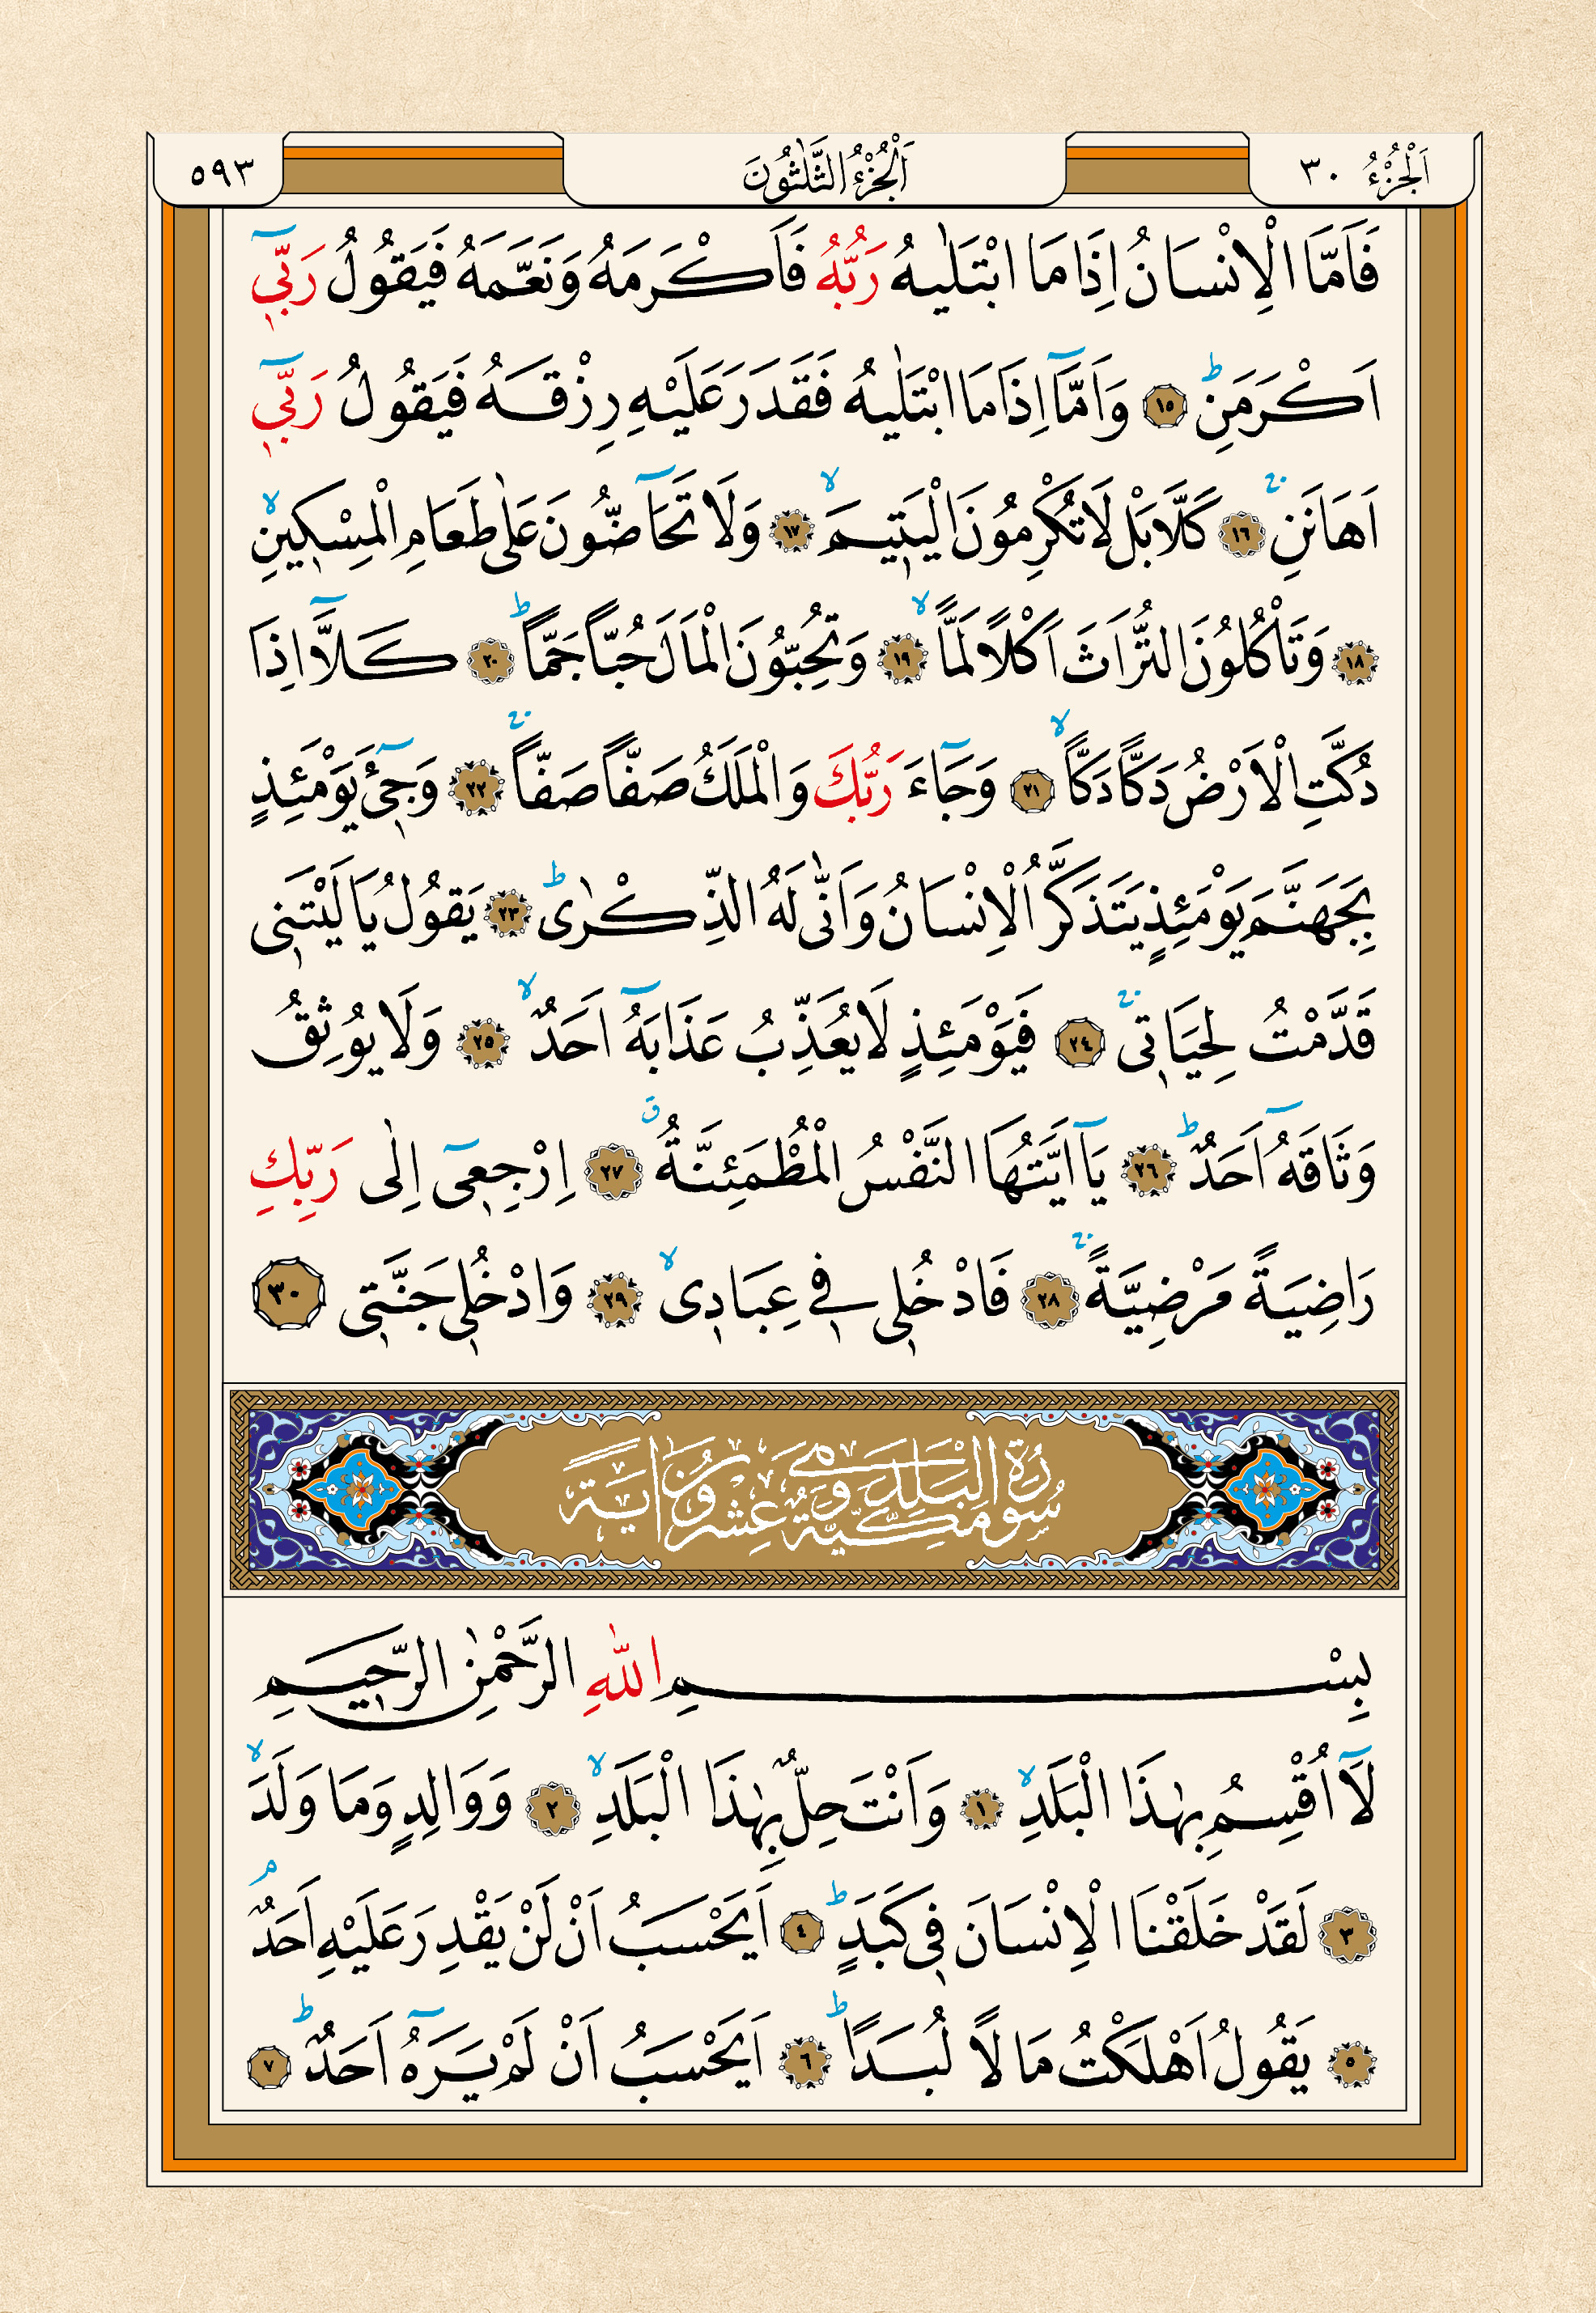 اَلْجُزْءُ ٣٠
اَلْجُزْءُ الثَّلٰثُونَ
٥٩٣
فَاَمَّا الْاِنْسَانُ اِذَا مَا ابْتَلٰيهُ رَبُّهُ فَاَكْرَمَهُ وَنَعَّمَهُ فَيَقُولُ رَبّ۪ٓي
اَكْرَمَنِۜ ﴿١٥﴾ وَاَمَّٓا اِذَا مَا ابْتَلٰيهُ فَقَدَرَ عَلَيْهِ رِزْقَهُ فَيَقُولُ رَبّ۪ٓي
اَهَانَنِۚ ﴿١٦﴾ كَلَّا بَلْ لَا تُكْرِمُونَ الْيَت۪يمَۙ ﴿١٧﴾ وَلَا تَحَٓاضُّونَ عَلٰى طَعَامِ الْمِسْك۪ينِۙ
﴿١٨﴾ وَتَأْكُلُونَ التُّرَاثَ اَكْلًا لَمًّاۙ ﴿١٩﴾ وَتُحِبُّونَ الْمَالَ حُبًّا جَمًّاۜ ﴿٢٠﴾ كَلَّٓا اِذَا
دُكَّتِ الْاَرْضُ دَكًّا دَكًّاۙ ﴿٢١﴾ وَجَٓاءَ رَبُّكَ وَالْمَلَكُ صَفًّا صَفًّاۚ ﴿٢٢﴾ وَج۪ٓيءَ يَوْمَئِذٍ
بِجَهَنَّمَ يَوْمَئِذٍ يَتَذَكَّرُ الْاِنْسَانُ وَاَنّٰى لَهُ الذِّكْرٰىۜ ﴿٢٣﴾ يَقُولُ يَا لَيْتَن۪ي
قَدَّمْتُ لِحَيَات۪يۚ ﴿٢٤﴾ فَيَوْمَئِذٍ لَا يُعَذِّبُ عَذَابَهُٓ اَحَدٌۙ ﴿٢٥﴾ وَلَا يُوثِقُ
وَثَاقَهُٓ اَحَدٌۜ ﴿٢٦﴾ يَٓا اَيَّتُهَا النَّفْسُ الْمُطْمَئِنَّةُۗ ﴿٢٧﴾ اِرْجِع۪ٓي اِلٰى رَبِّكِ
رَاضِيَةً مَرْضِيَّةًۚ ﴿٢٨﴾ فَادْخُل۪ي ف۪ي عِبَاد۪يۙ ﴿٢٩﴾ وَادْخُل۪ي جَنَّت۪ي ﴿٣٠﴾
سُورَةُ الْبَلَدِ مَكِّيَّةٌ وَهِيَ عِشْرُونَ اٰيَةً
بِسْمِ اللّٰهِ الرَّحْمٰنِ الرَّح۪يمِ
لَٓا اُقْسِمُ بِهٰذَا الْبَلَدِۙ ﴿١﴾ وَاَنْتَ حِلٌّ بِهٰذَا الْبَلَدِۙ ﴿٢﴾ وَوَالِدٍ وَمَا وَلَدَۙ
﴿٣﴾ لَقَدْ خَلَقْنَا الْاِنْسَانَ ف۪ي كَبَدٍۜ ﴿٤﴾ اَيَحْسَبُ اَنْ لَنْ يَقْدِرَ عَلَيْهِ اَحَدٌۢ
﴿٥﴾ يَقُولُ اَهْلَكْتُ مَالًا لُبَدًاۜ ﴿٦﴾ اَيَحْسَبُ اَنْ لَمْ يَرَهُٓ اَحَدٌۜ ﴿٧﴾